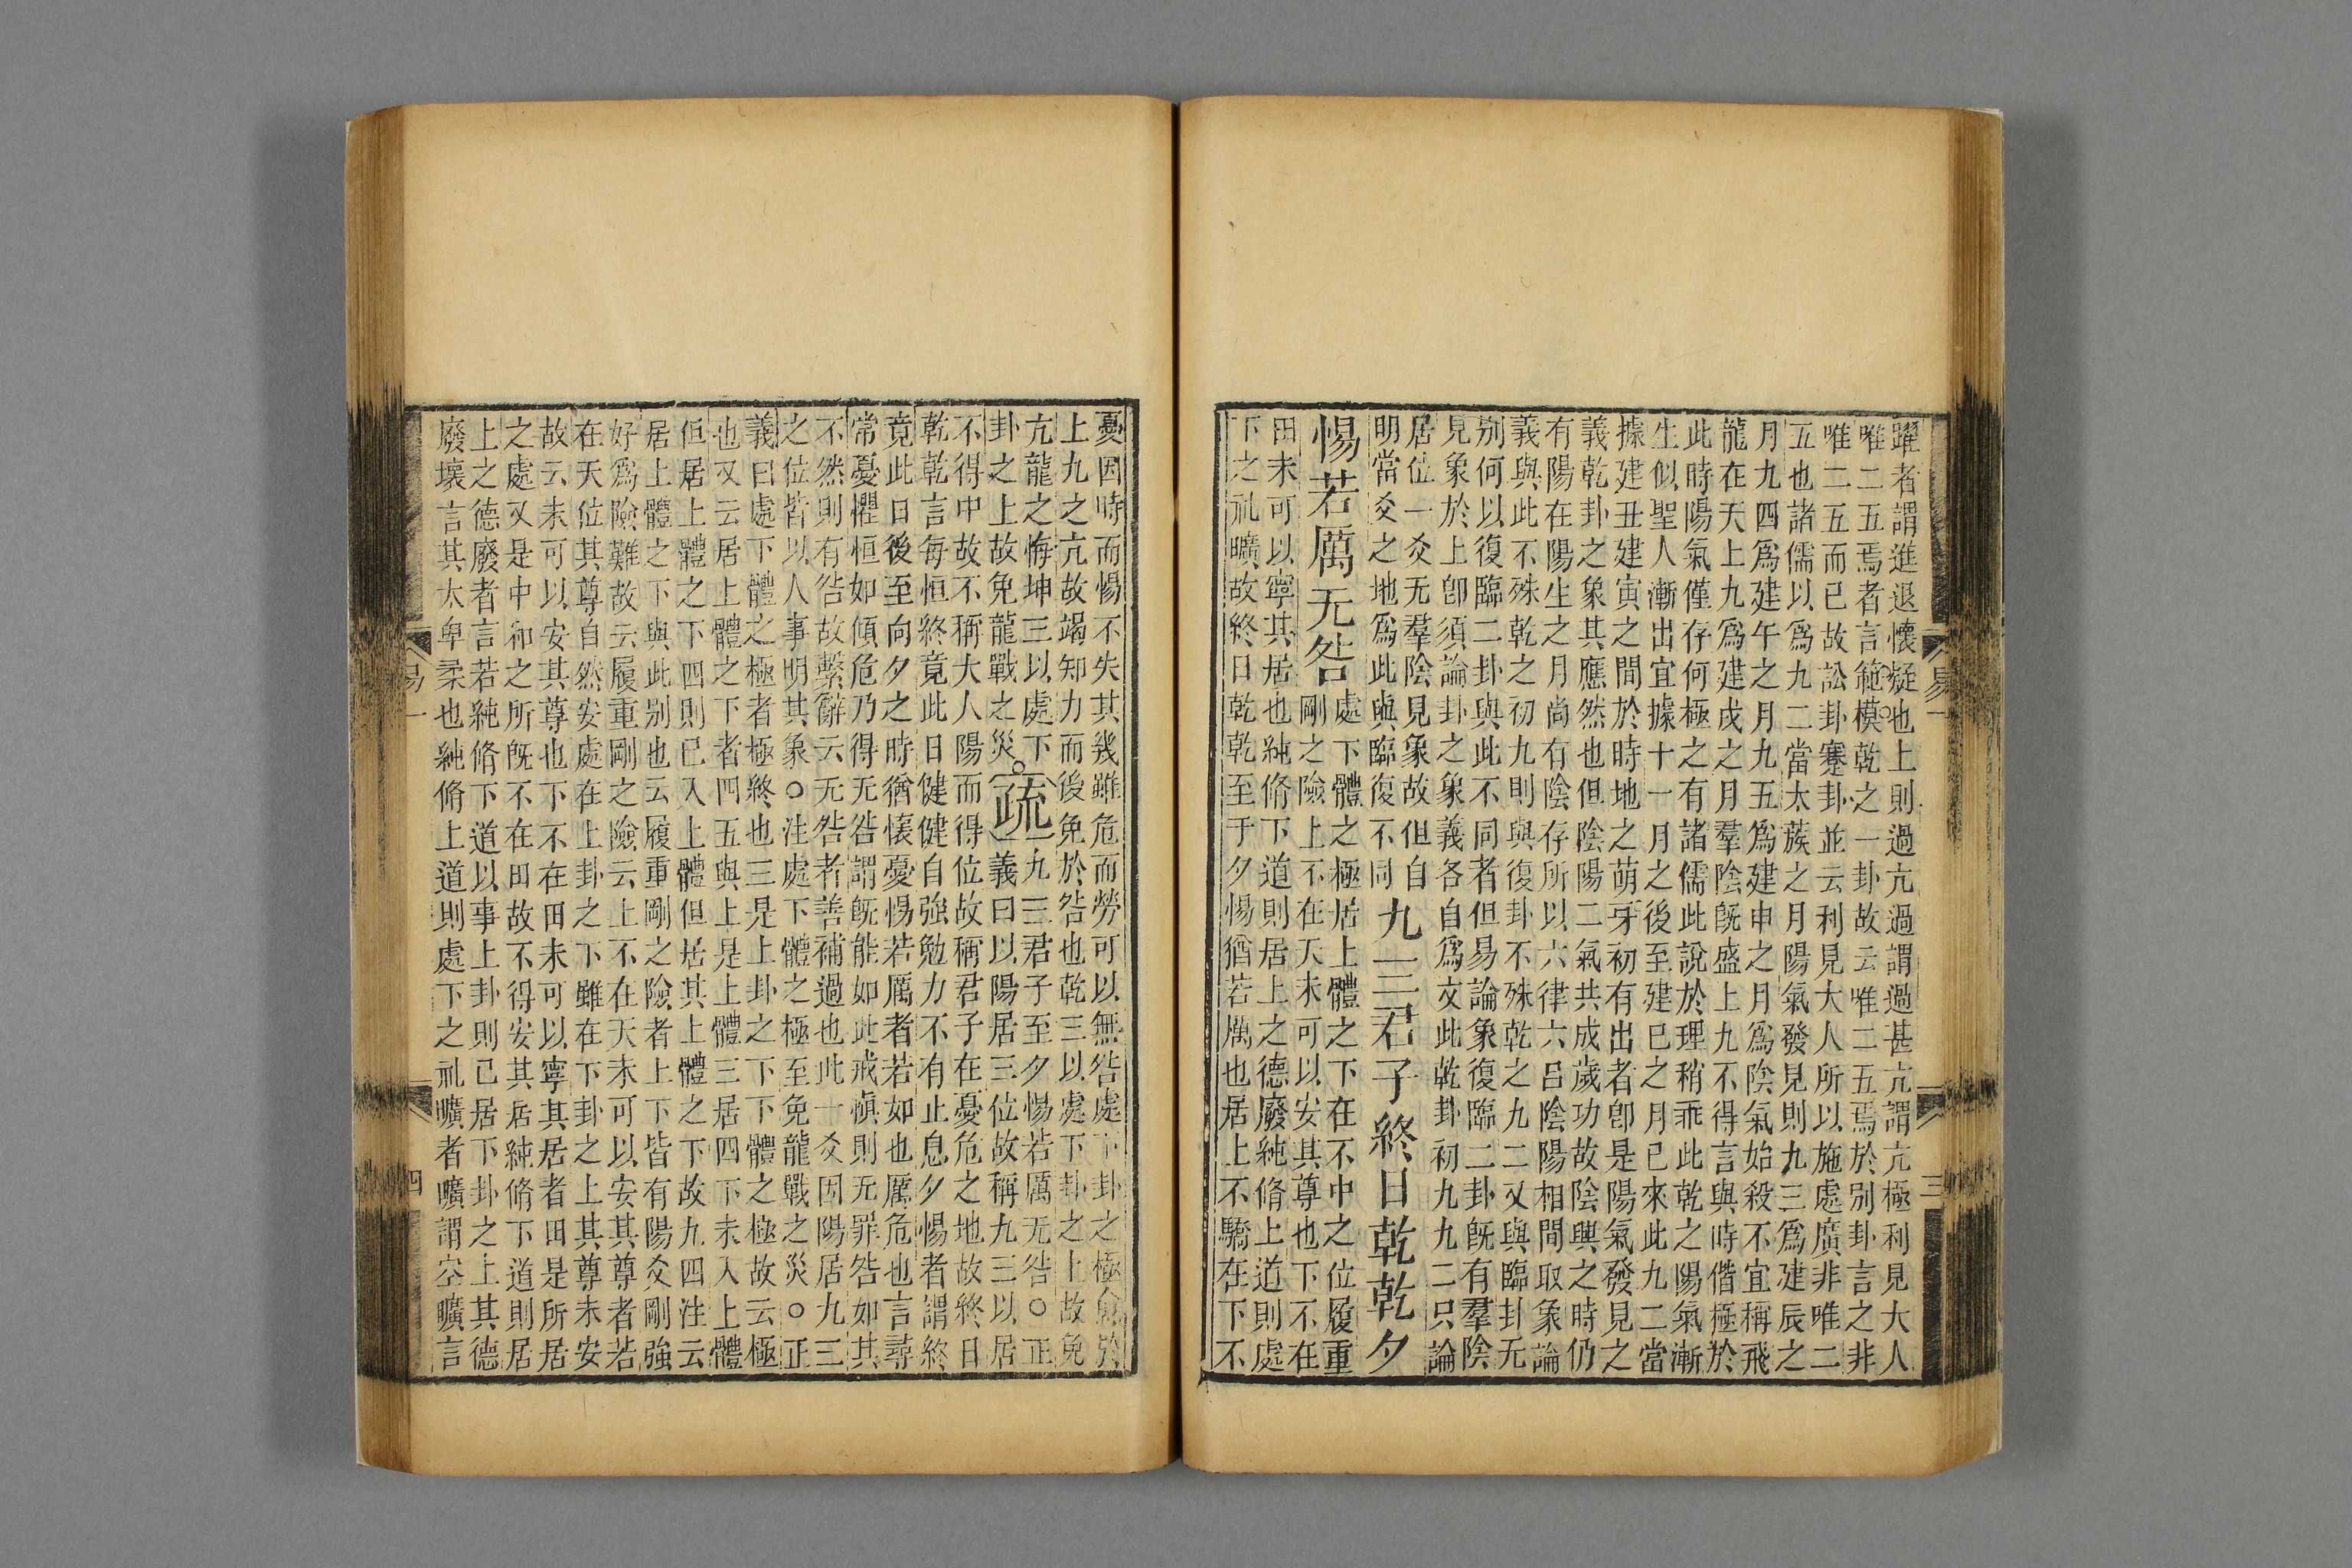 躍者謂進退懷疑也上則過亢過謂過甚亢謂亢極利見大人
唯二五焉者言範模乾之一卦故云唯二五焉於別卦言之非
唯二五而已故訟卦蹇卦並云利見大人所以施處廣非唯二
五也諸儒以爲九二當太蔟之月陽氣發見則九三爲建辰之
月九四爲建午之月九五爲建申之月爲陰氣始殺不宜稱飛
龍在天上九爲建戌之月羣陰旣盛上九不得言與時偕極於
此時陽氣僅存何極之有諸儒此說於理稍乖此乾之陽氣漸
生似聖人漸出宜據十一月之後至建巳之月已來此九二當
據建丑建寅之間於時地之萌牙初有出者卽是陽氣發見之
義乾卦之象其應然也但陰陽二氣共成歲功故陰興之時仍
有陽在陽生之月尚有陰存所以六律六呂陰陽相間取象論
義與此不殊乾之初九則與復卦不殊乾之九二又與臨卦无
別何以復臨二卦與此不同者但易論象復臨二卦旣有羣陰
見象於上卽須論卦之象義各自爲文此乾卦初九九二只論
居位一爻无羣陰見象故但自
明當爻之地爲此與臨復不同
九三君子終日乾乾夕
惕若厲无咎
處下體之極居上體之下在不中之位履重
剛之險上不在天未可以安其尊也下不在
田未可以寧其居也純脩下道則居上之德廢純脩上道則處
下之礼曠故終日乾乾至于夕惕猶若厲也居上不驕在下不
易一
三
憂因時而惕不失其幾雖危而勞可以無咎處下卦之極愈於
上九之亢故竭知力而後免於咎也乾三以處下卦之上故免
亢龍之悔坤三以處下
卦之上故免龍戰之災
疏
九三君子至夕惕若厲无咎○正
義曰以陽居三位故稱九三以居
不得中故不稱大人陽而得位故稱君子在憂危之地故終日
乾乾言每恒終竟此日健健自強勉力不有止息夕惕者謂終
竟此日後至向夕之時猶懷憂惕若厲者若如也厲危也言尋
常憂懼恒如傾危乃得无咎謂旣能如此戒愼則无罪咎如其
不然則有咎故繫辭云无咎者善補過也此一爻因陽居九三
之位皆以人事明其象○注處下體之極至免龍戰之災○正
義曰處下體之極者極終也三是上卦之下下體之極故云極
也又云居上體之下者四五與上是上體三居四下未入上體
但居上體之下四則已入上體但居其上體之下故九四注云
居上體之下與此別也云履重剛之險者上下皆有陽爻剛強
好爲險難故云履重剛之險云上不在天未可以安其尊者若
在天位其尊自然安處在上卦之下雖在下卦之上其尊未安
故云未可以安其尊也下不在田未可以寧其居者田是所居
之處又是中和之所旣不在田故不得安其居純脩下道則居
上之德廢者言若純脩下道以事上卦則己居下卦之上其德
廢壞言其太卑柔也純脩上道則處下之礼曠者曠謂空曠言
易一
四